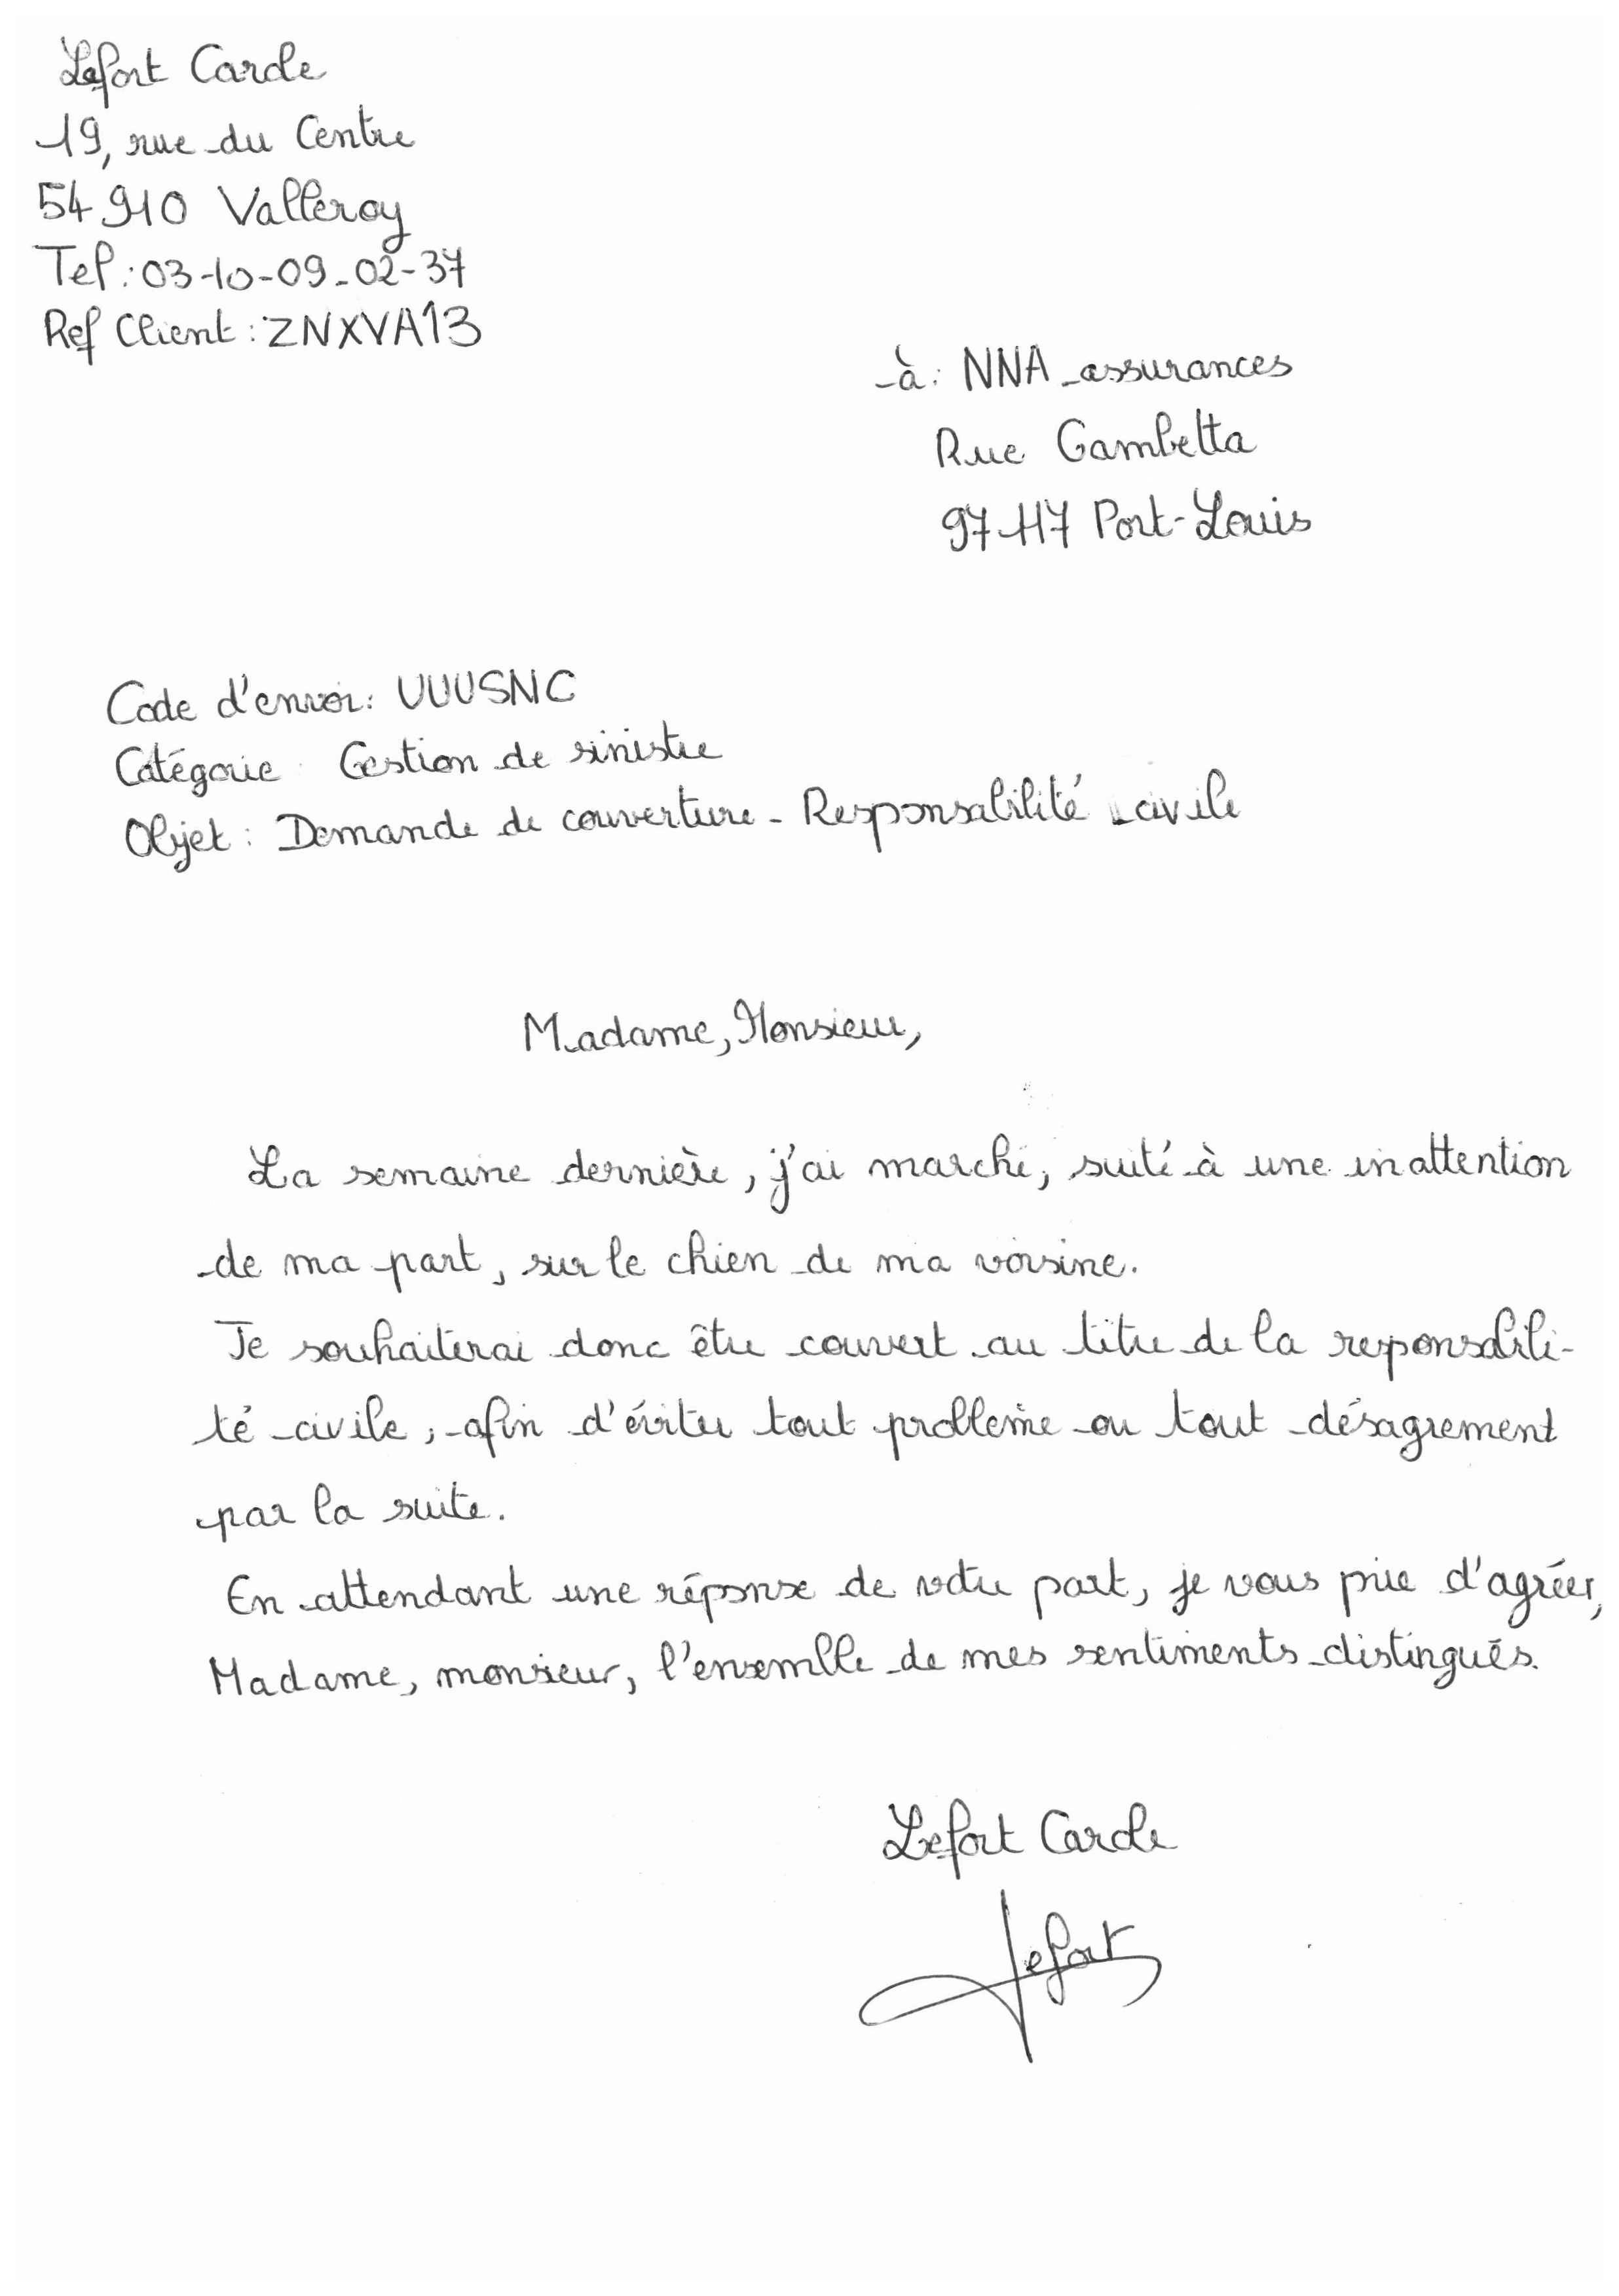 Lefort Carole
19, rue du Centre
54910 Valleroy
Tel : 03-10-09-02-37
Ref Client : ZNXVA13
à : NNA assurances
Rue Gambetta
97117 Port-Louis
Code d'envoi : UUUSNC
Catégorie Gestion de sinistre
Objet : Demande de couverture - Responsabilité civile
Madame, Monsieur,
La semaine dernière, j'ai marché, suite à une inattention
de ma part, sur le chien de ma voisine.
Je souhaiterai donc être couvert au titre de la responsabili-
té civile, afin d'éviter tout problème ou tout désagrement
par la suite.
En attendant une réponse de votre part, je vous prie d'agréer,
Madame, monsieur, l'ensemble de mes sentiments distingués.
Lefort Carole
Lefort